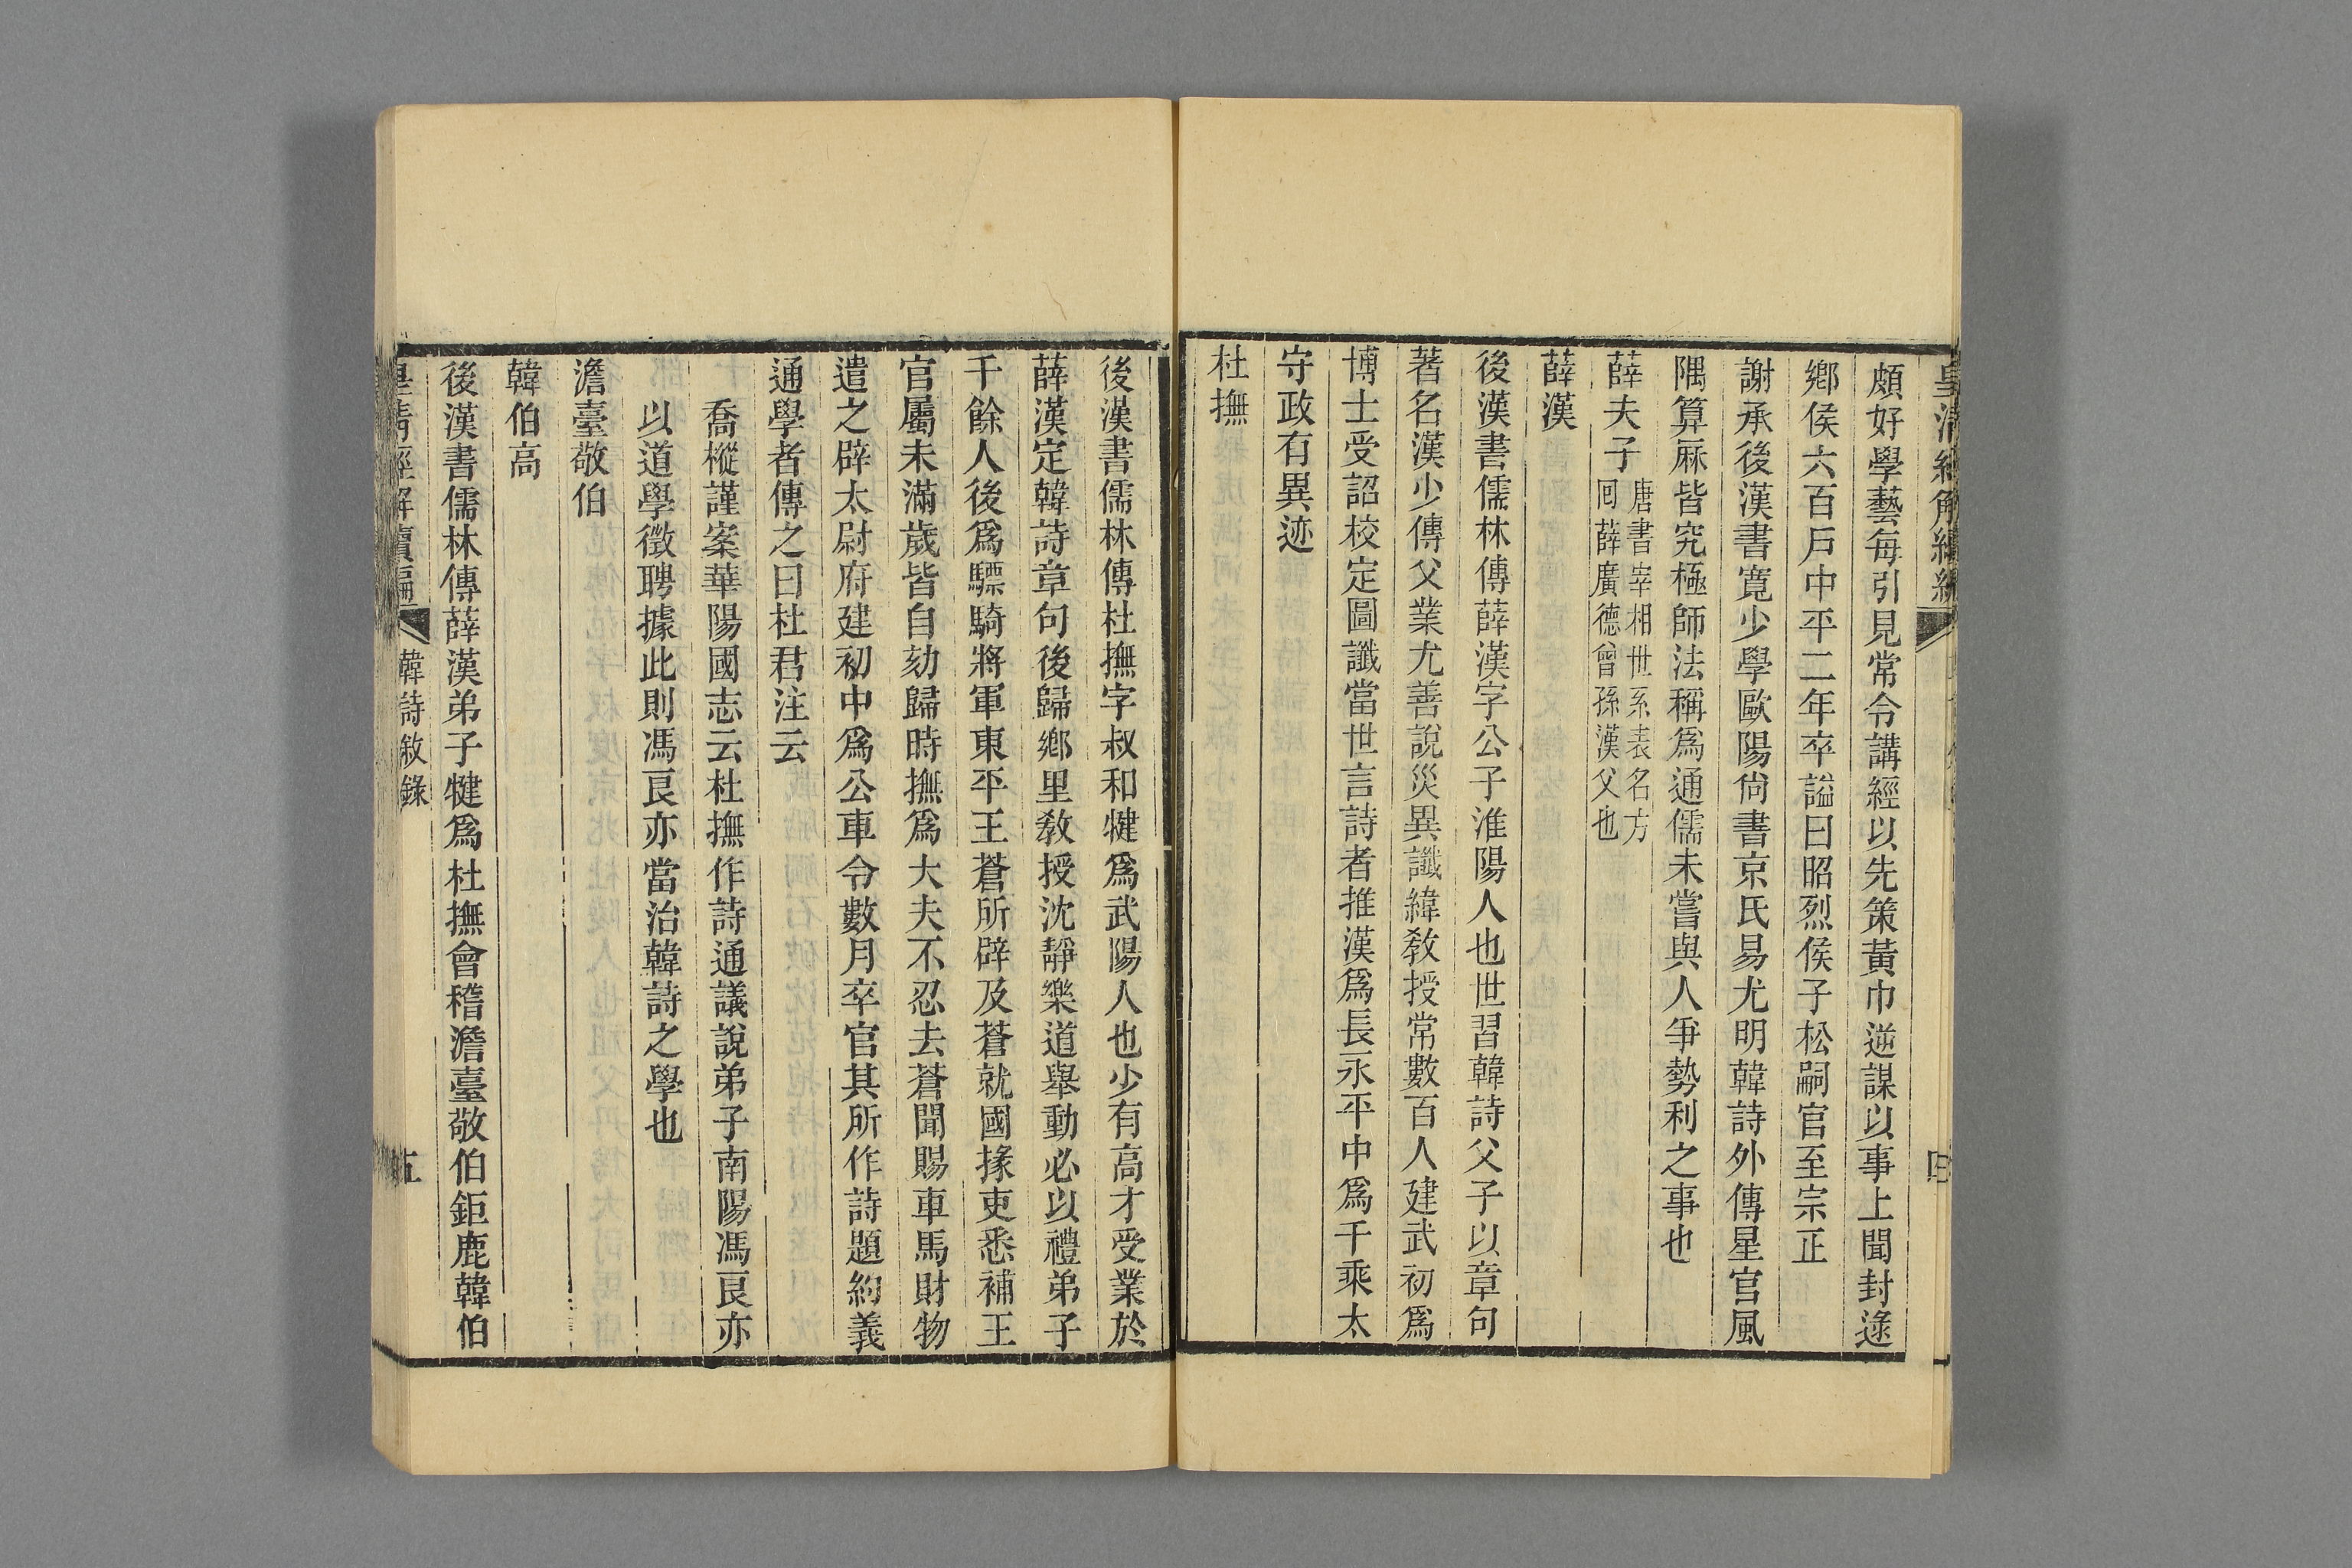 頗好學藝每引見常令講經以先策黃巾逆謀以事上聞封逯
鄉侯六百戸中平二年卒謚曰昭烈侯子松嗣官至宗正
謝承後漢書寬少學歐陽尙書京氏易尤明韓詩外傳星官風
隅算厤皆究極師法稱爲通儒未嘗與人爭勢利之事也
薛夫子唐書宰相世系表名方
囘薛廣德曾孫漢父也
薛漢
後漢書儒林傳薛漢字公子淮陽人也世習韓詩父子以章句
著名漢少傳父業尤善說災異讖緯敎授常數百人建武初爲
博士受詔校定圖讖當世言詩者推漢爲長永平中爲千乘太
守政有異迹
杜撫
後漢書儒林傳杜撫字叔和犍爲武陽人也少有高才受業於
薛漢定韓詩章句後歸鄉里敎授沈靜樂道舉動必以禮弟子
千餘人後爲驃騎將軍東平王蒼所辟及蒼就國掾吏悉補王
官屬未滿歲皆自劾歸時撫爲大夫不忍去蒼聞賜車馬財物
遣之辟太尉府建初中爲公車令數月卒官其所作詩題約義
通學者傳之曰杜君注云
喬樅謹案華陽國志云杜撫作詩通議說弟子南陽馮良亦
以道學徵聘據此則馮良亦當治韓詩之學也
澹臺敬伯
韓伯高
後漢書儒林傳薛漢弟子犍爲杜撫會稽澹臺敬伯鉅鹿韓伯
皇淸經解續編 韓詩敘錄 五